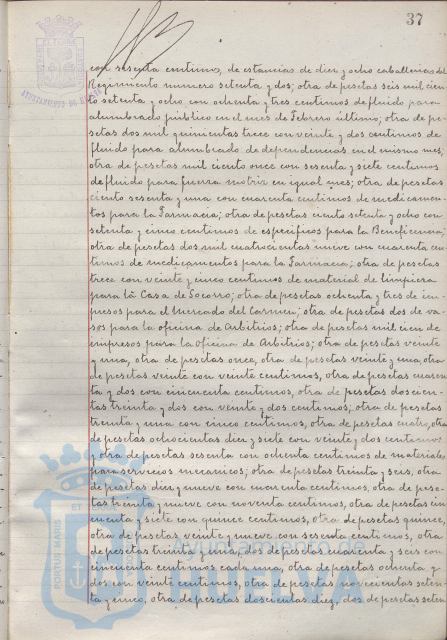 37
con sesenta centimos, de estancias de diez y ocho caballerias del
Regimiento numero setenta y dos; otra de pesetas seis mil cien-
to setenta y ocho con ochenta y tres centimos de fluido para
alumbrado público en el mes de Febrero último; otra de pe-
setas dos mil quinientas trece con veinte y dos centimos de
fluido para alumbrado de dependencias en el mismo mes;
otra de pesetas mil ciento once con sesenta y siete centimos
de fluido para fuerza motriz en igual mes; otra de pesetas
ciento sesenta y una con cuarenta centimos de medicamen-
tos para la Farmacia; otra de pesetas ciento setenta y ocho con
setenta y cinco centimos de especificos para la Beneficencia;
otra de pesetas dos mil cuatrocientas nueve con cuarenta cen-
timos de medicamentos para la Farmacia; otra de pesetas
trece con veinte y cinco centimos de material de limpieza
para la Casa de Socorro; otra de pesetas ochenta y tres de im-
presos para el Mercado del Carmen; otra de pesetas dos de va-
sos para la oficina de Arbitrios; otra de pesetas mil cien de
impresos para la oficina de Arbitrios; otra de pesetas veinte
y una, otra de pesetas once, otra de pesetas veinte y una, otra
de pesetas veinte con veinte centimos, otra de pesetas cuaren-
ta y dos con cincuenta centimos, otra de pesetas doscien-
tas treinta y dos con veinte y dos centimos; otra de pesetas
treinta y una con cinco centimos, otra de pesetas cuatro, otra
de pesetas ochocientas diez y siete con veinte y dos centimos
y otra de pesetas sesenta con ochenta centimos de materiales
para servicios mecanicos; otra de pesetas treinta y seis, otra
de pesetas diez y nueve con cuarenta centimos, otra de pese-
tas treinta y nueve con noventa centimos, otra de pesetas cin-
cuenta y siete con quince centimos, otra de pesetas quince,
otra de pesetas veinte y nueve con sesenta centimos, otra
de pesetas treinta y una, dos de pesetas cuarenta y seis con
cincuenta centimos cada una, otra de pesetas ochenta y
dos con veinte centimos, otra de pesetas novecientas seten-
ta y cinco, otra de pesetas doscientas diez, dos de pesetas seten
PORTUS MARIS ET
Ayuntamiento de
HUELVA